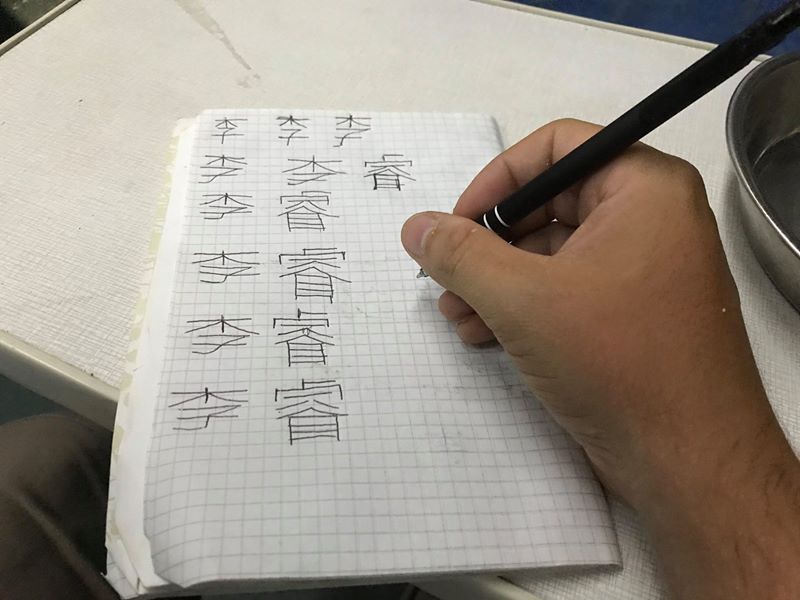 李 李 李
李 李 睿
李 睿
李 睿
李 睿
李 睿